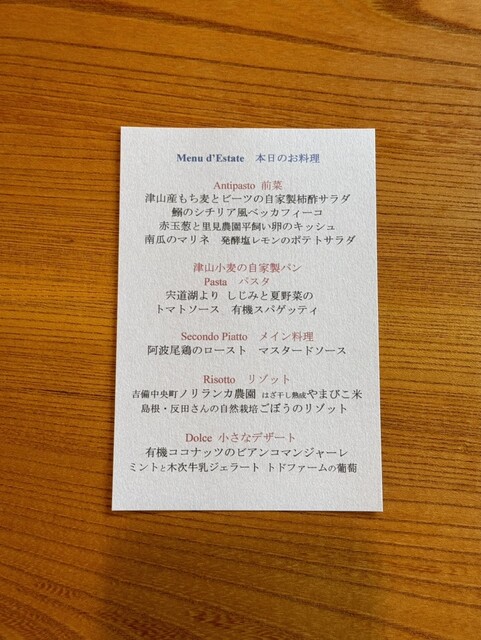 Menu d'Estate 本日のお料理
Antipasto 前菜
津山産もち麦とビーツの自家製柿酢サラダ
鰯のシチリア風ベッカフィーコ
赤玉葱と里見農園平飼い卵のキッシュ
南瓜のマリネ 発酵塩レモンのポテトサラダ
津山小麦の自家製パン
Pasta パスタ
宍道湖より しじみと夏野菜の
トマトソース 有機スパゲッティ
Secondo Piatto メイン料理
阿波尾鶏のロースト マスタードソース
Risotto リゾット
吉備中央町ノリランカ農園 はざ干し熟成やまびこ米
島根・反田さんの自然栽培ごぼうのリゾット
Dolce 小さなデザート
有機ココナッツのビアンコマンジャーレ
ミントと木次牛乳ジェラート トドファームの葡萄